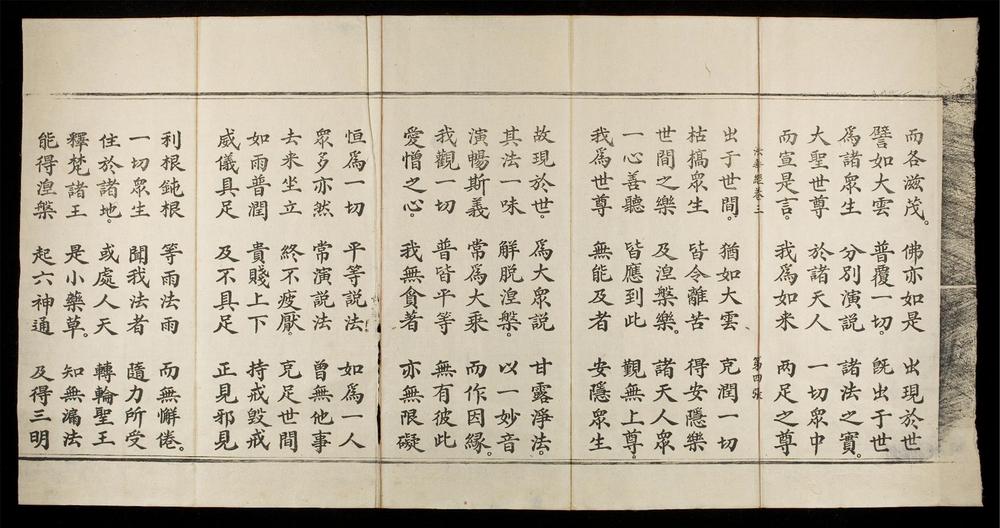 而各滋茂。 佛亦如是 出現於世
譬如大雲 普覆一切。 既出于世
爲諸眾生 分別演説 諸法之實。
大聖世尊 於諸天人 一切眾中
而宣是言。 我爲如来 兩足之尊
法華經卷三 第四張
出于世間。 猶如大雲 充潤一切
枯槁眾生 皆令離苦 得安隱樂
世間之樂 及涅槃樂。 諸天人眾
一心善聽 皆應到此 觀無上尊。
我爲世尊 無能及者 安隱眾生
故現於世。 爲大眾説 甘露淨法。
其法一味 解脱涅槃。 以一妙音
演暢斯義 常爲大乘 而作因緣。
我觀一切 普皆平等 無有彼此
愛憎之心。 我無貪著 亦無限礙
恒爲一切 平等説法 如爲一人
眾多亦然 常演説法 曾無他事
去来坐立 終不疲厭。 充足世間
如雨普潤 貴賤上下 持戒毀戒
威儀具足 及不具足 正見邪見
利根鈍根 等雨法雨 而無懈倦。
一切眾生 聞我法者 隨力所受
住於諸地。 或處人天 轉輪聖王
釋梵諸王 是小藥草。 知無漏法
能得涅槃 起六神通 及得三明